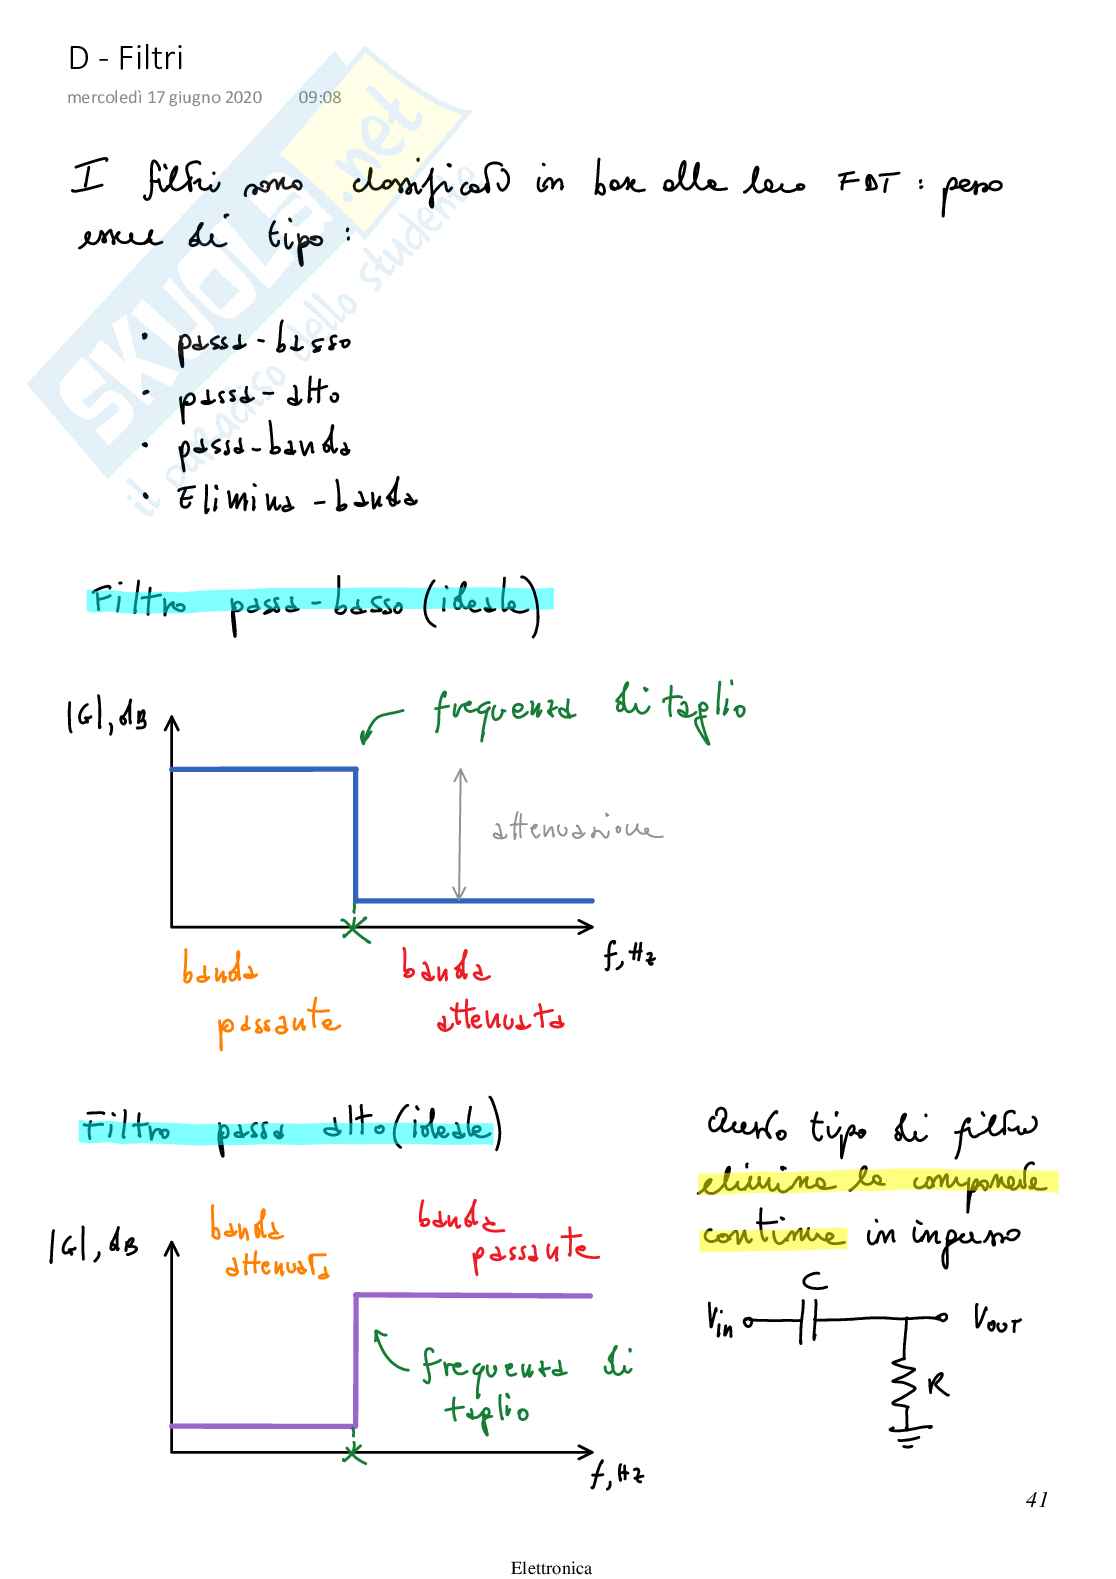 D - Filtri
mercoledì 17 giugno 2020 09:08
SKUOLA.net
il paradiso dello studente
I filtri sono classificati in base alla loro FDT : posso
essere di tipo :
• passa-basso
• passa-alto
• passa-banda
• Elimina-banda
Filtro passa-basso (ideale)
|G|, dB
frequenza di taglio
attenuazione
f, Hz
banda
passante
banda
attenuata
Filtro passa alto (ideale)
|G|, dB
banda
attenuata
banda
passante
frequenza di
taglio
f, Hz
Questo tipo di filtro
elimina la componente
continua in ingresso
C
Vin
VOUT
R
41
Elettronica